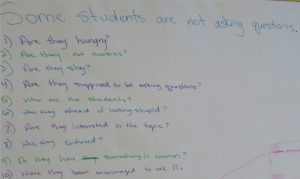 Some students are not asking questions.
1) Are they hungry?
2) Are they not curious?
3) Are they shy?
4) Are they supposed to be asking questions?
5) Who are the students?
6) Are they afraid of looking stupid?
7) Are they interested in the topic?
8) Are they confused?
9) Do they have something in common?
10) Have they been encouraged to ask